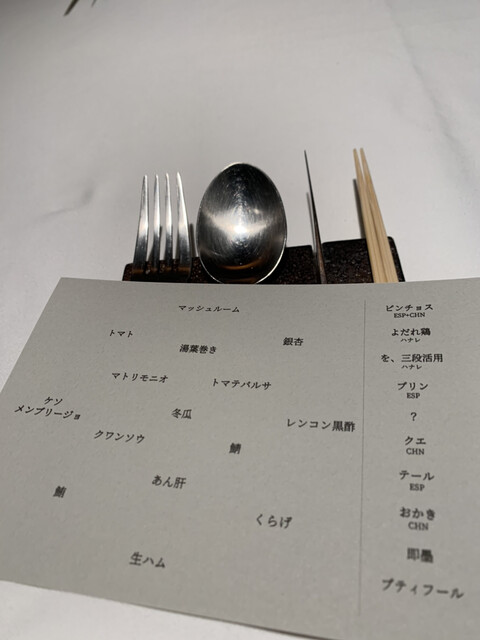 マッシュルーム
トマト
湯葉巻き
銀杏
マトリモニオ
トマテバルサ
ケソ
メンブリージョ
冬瓜
レンコン黒酢
クワンソウ
鯖
鮪
あん肝
くらげ
生ハム
ピンチョス
ESP×CHN
よだれ鶏
ハナレ
を、三段活用
ハナレ
プリン
ESP
?
クエ
CHN
テール
ESP
おかき
CHN
即墨
プティフール